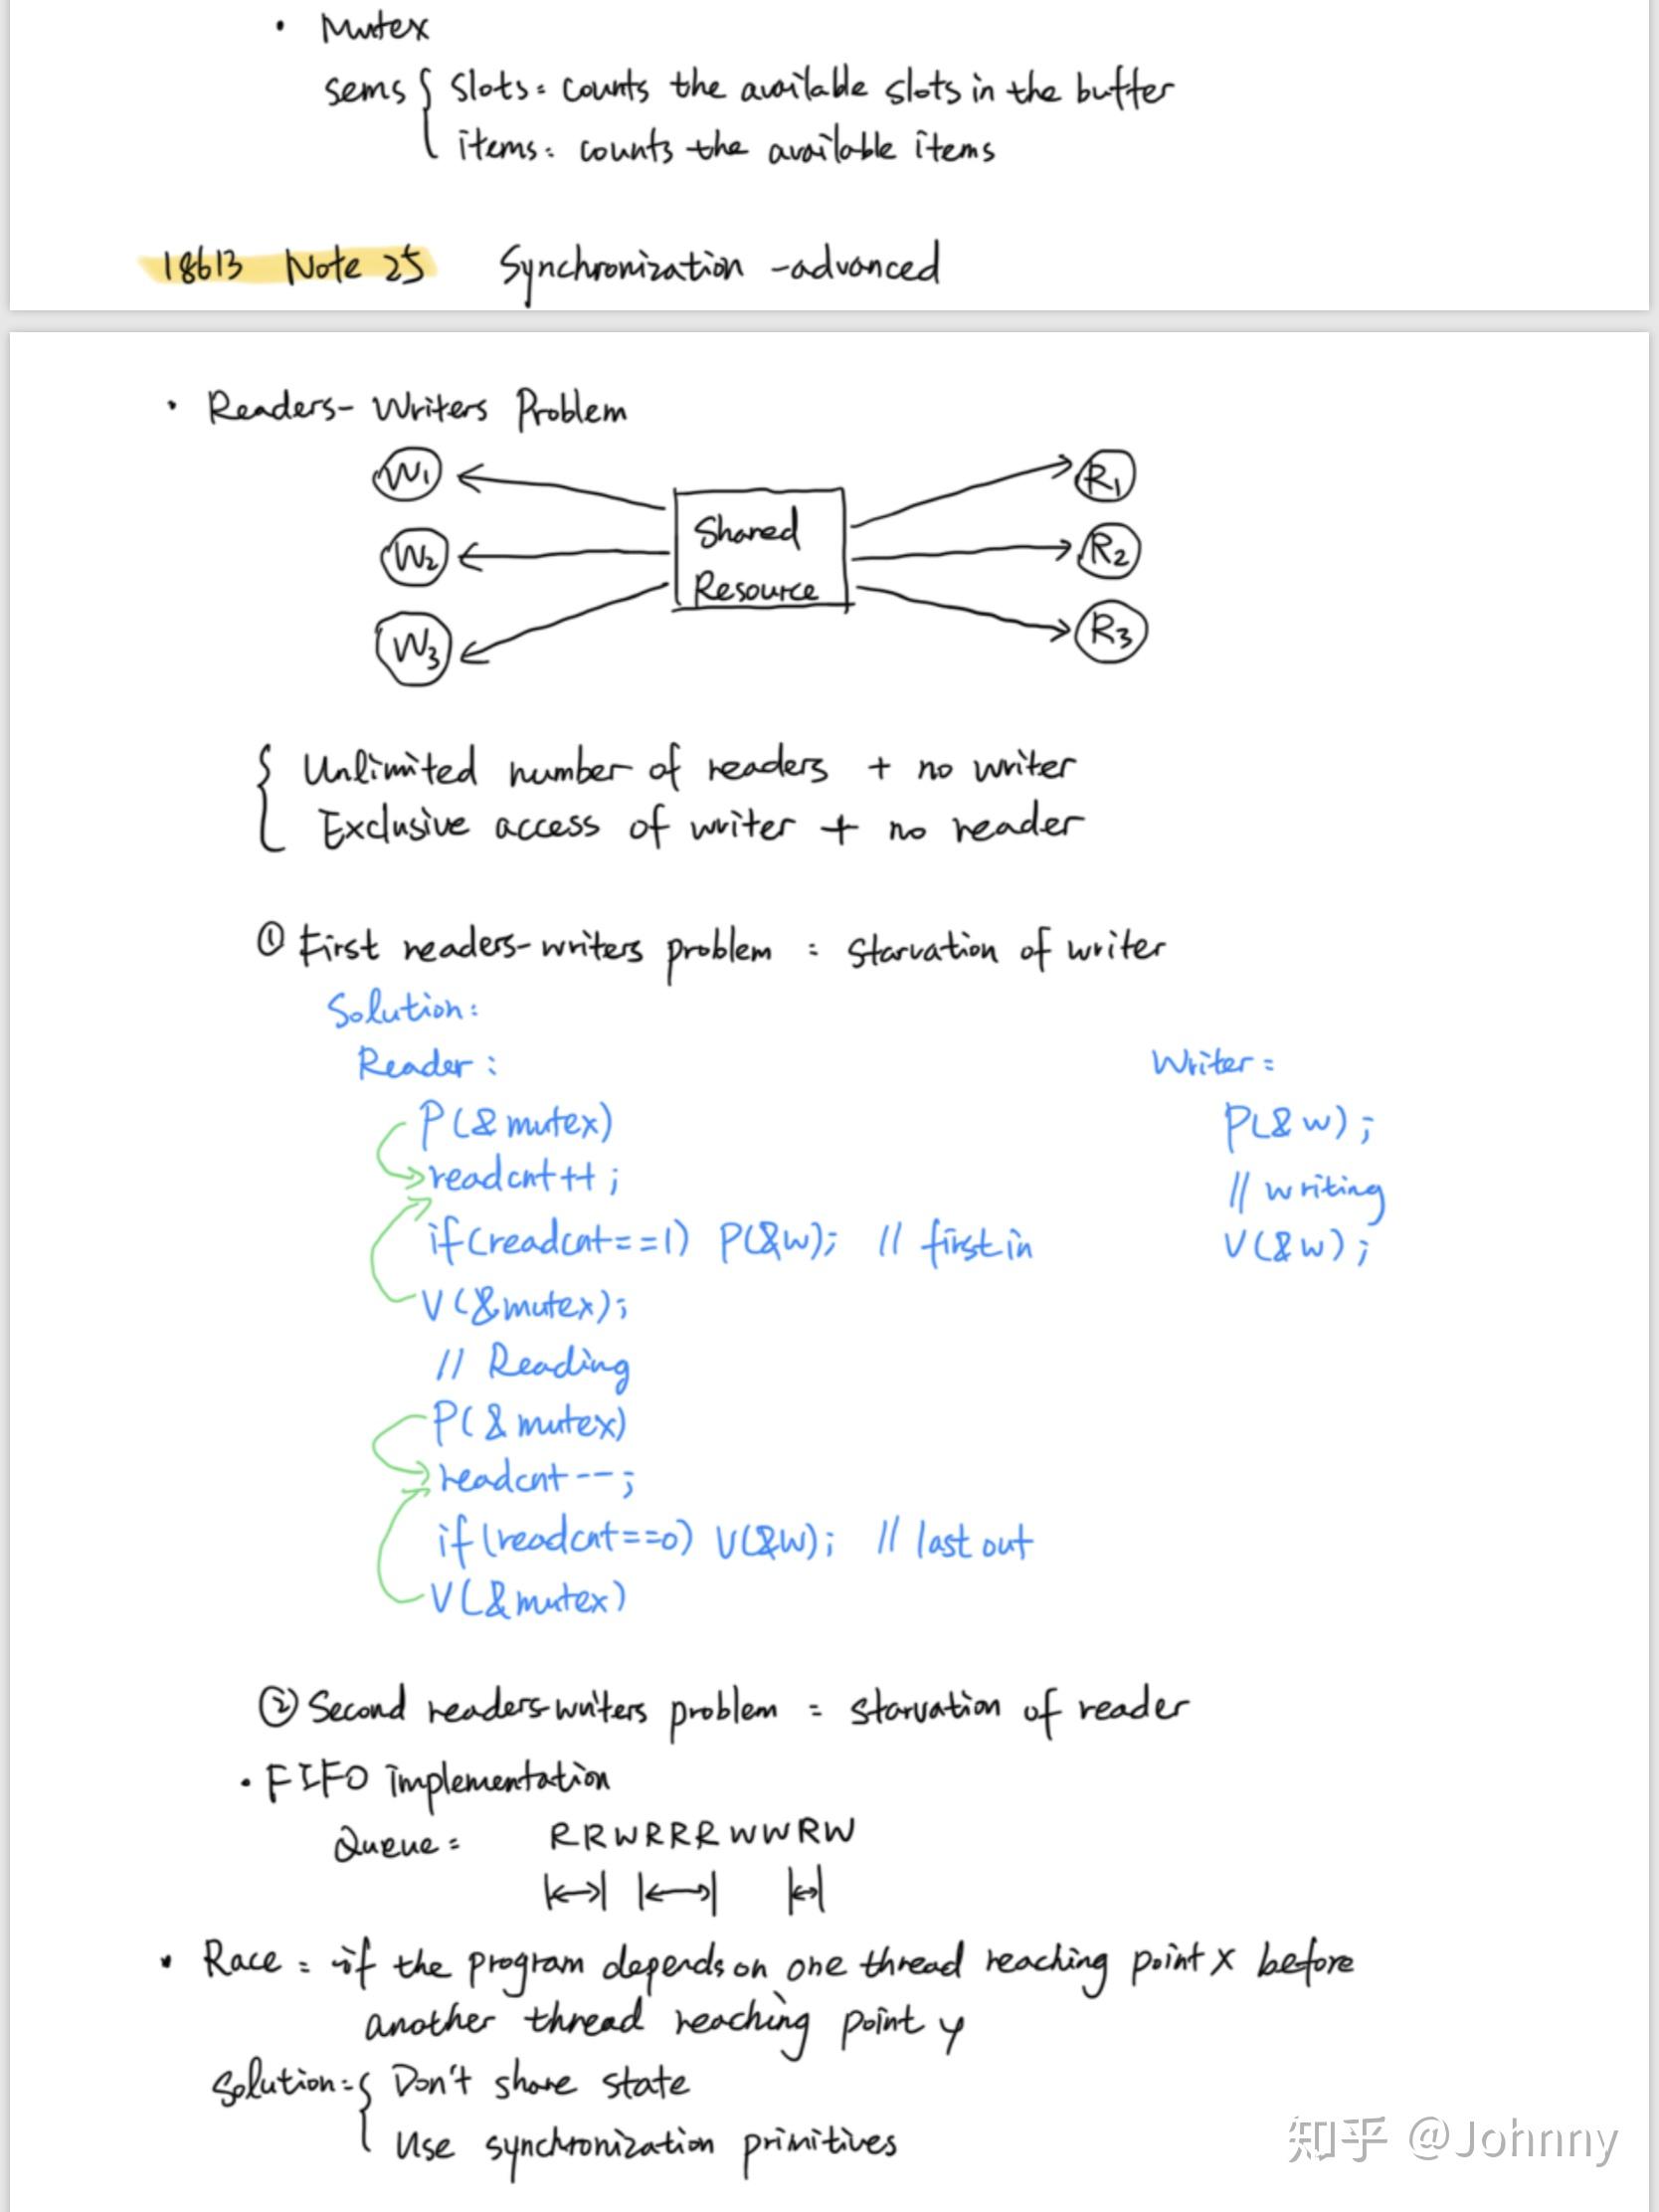 • Mutex
sems { slots: counts the available slots in the buffer
items: counts the available items
18613 Note 25 Synchronization - advanced
• Readers - Writers Problem
W1 R1
Shared
W2 R2
Resource
W3 R3
{ Unlimited number of readers + no writer
Exclusive access of writer + no reader
① First readers-writers problem = starvation of writer
Solution:
Reader: Writer:
P(&mutex) P(&w);
readcnt++; // writing
if(readcnt==1) P(&w); // first in V(&w);
V(&mutex);
// Reading
P(&mutex)
readcnt--;
if(readcnt==0) V(&w); // last out
V(&mutex)
② Second readers-writers problem = starvation of reader
• FIFO implementation
Queue: R R W R R R W W R W
• Race: if the program depends on one thread reaching point x before
another thread reaching point y
Solution: { Don't share state
Use synchronization primitives
知乎 @Johnny